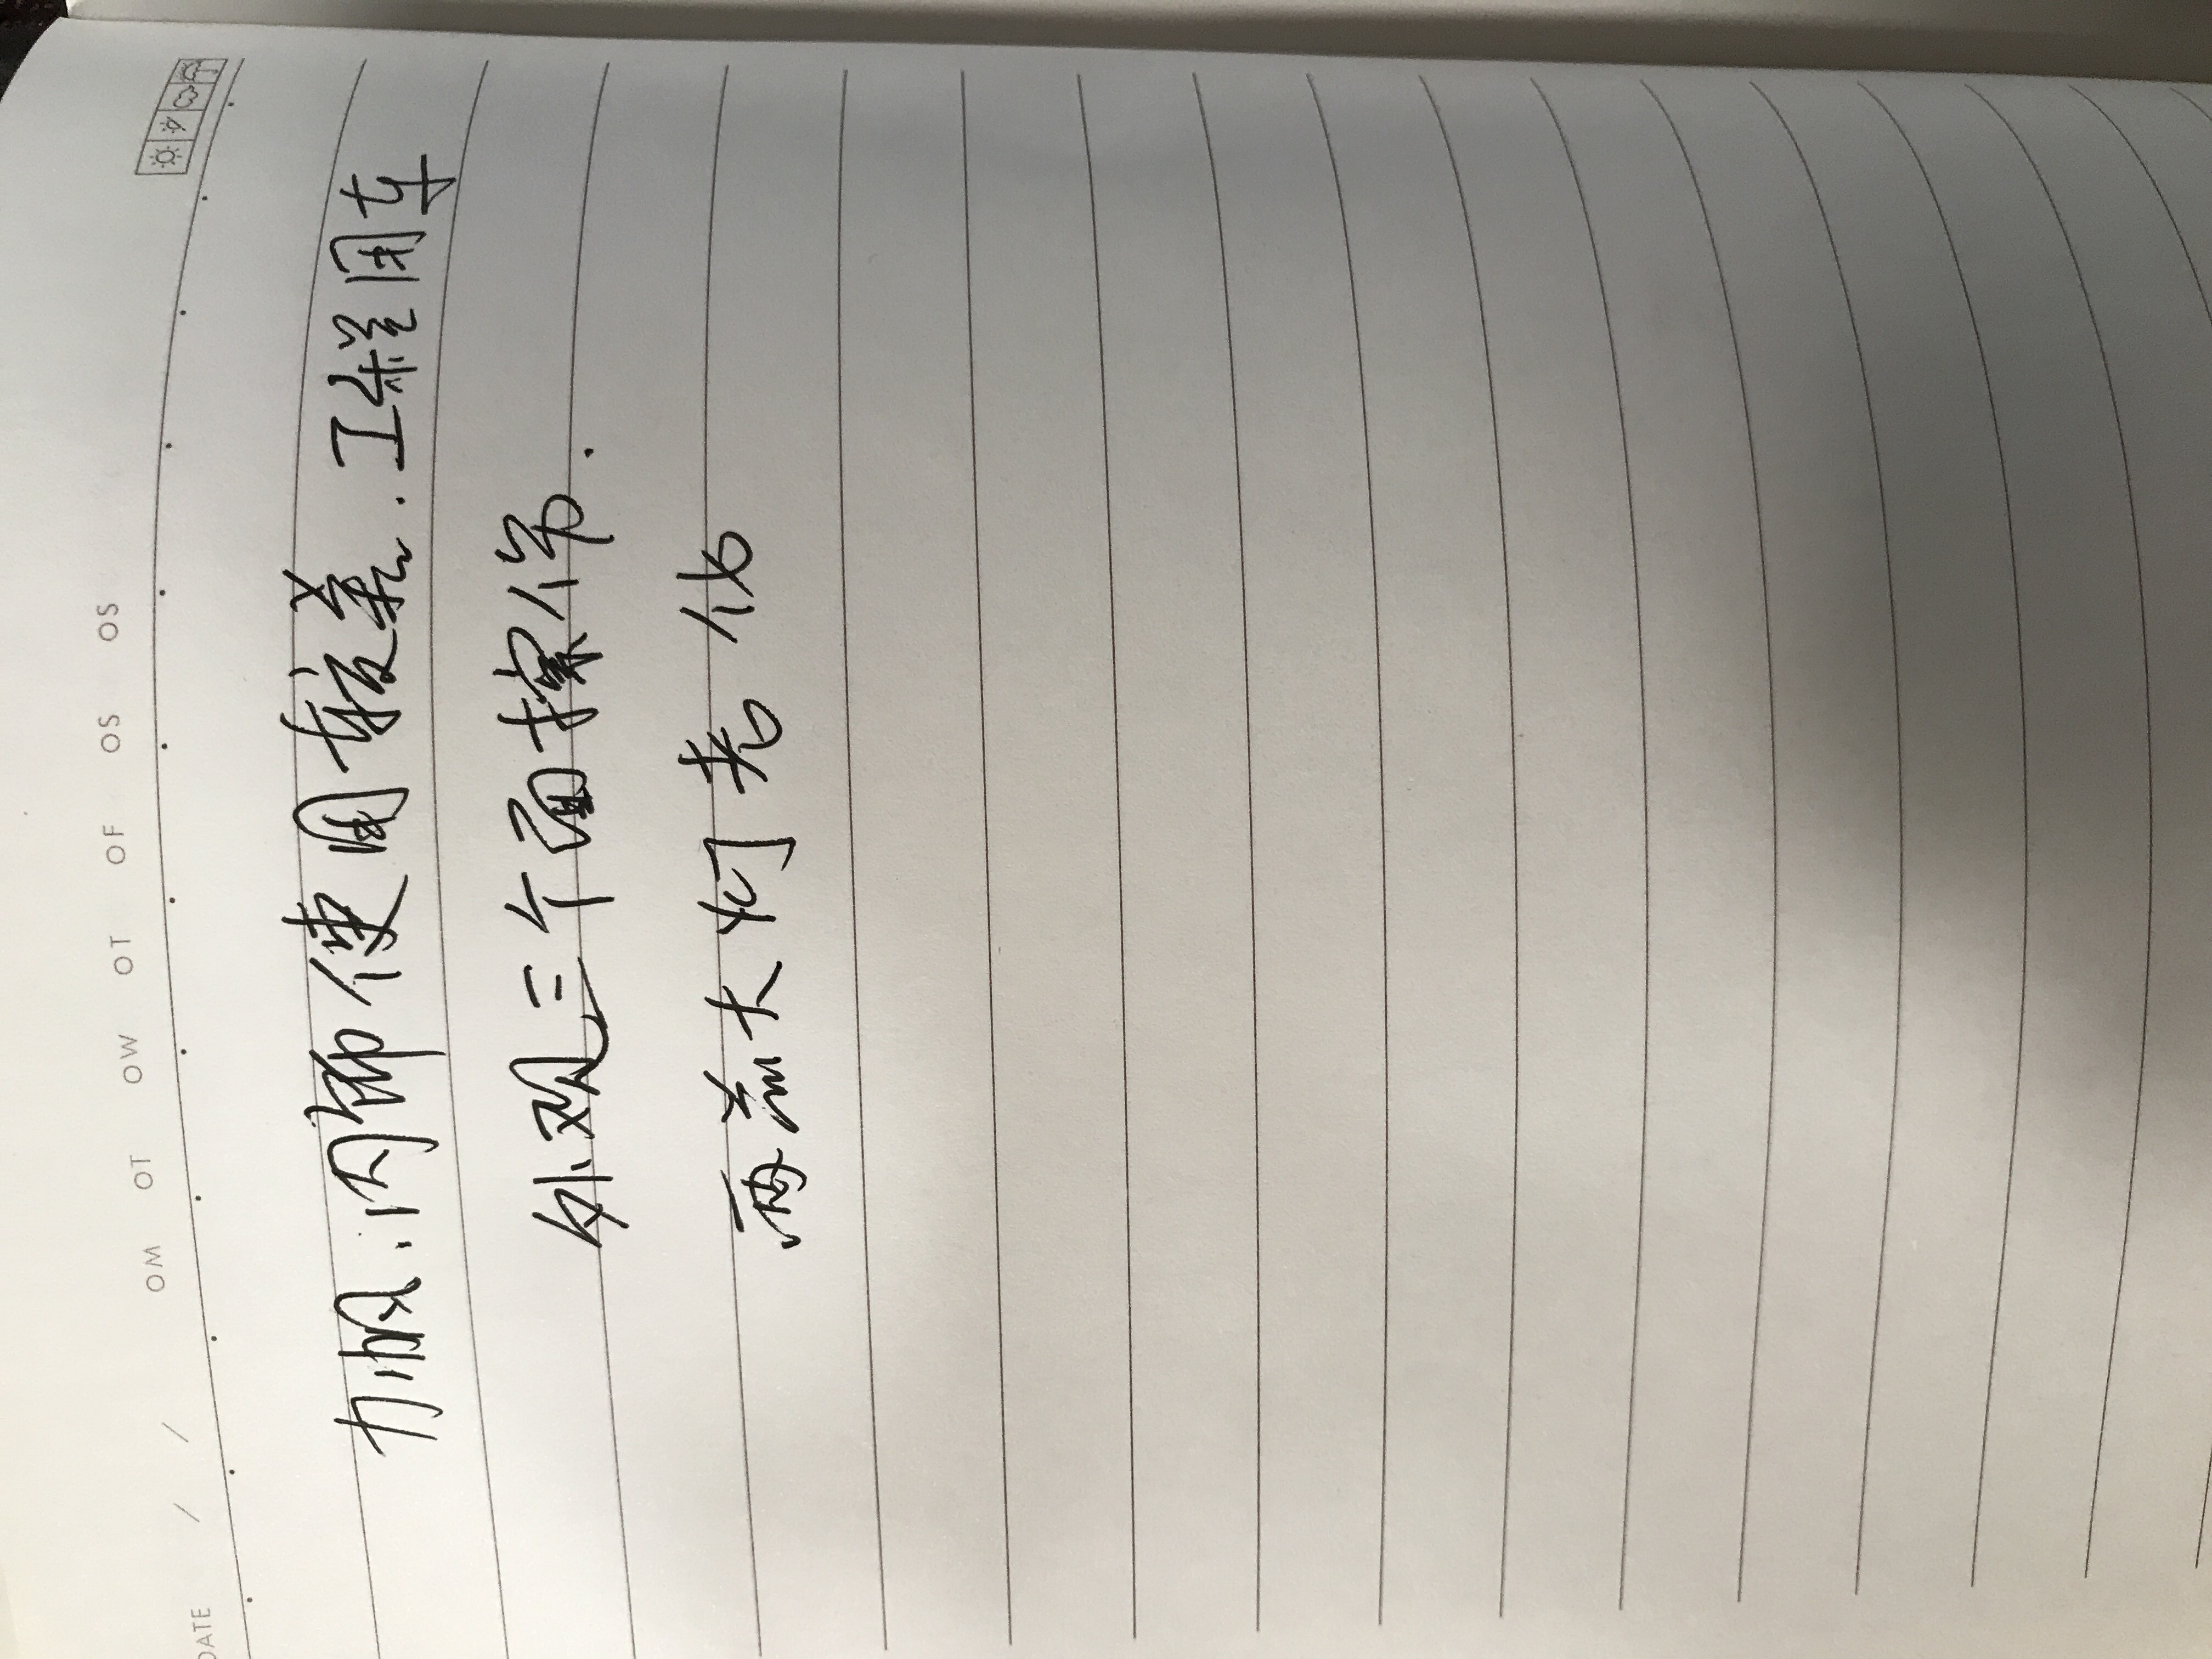 DATE / / OM OT OW OT OF OS OS
力帆.内饰使用较差.工程用车
外观三个面擦伤.
两盏大灯老化